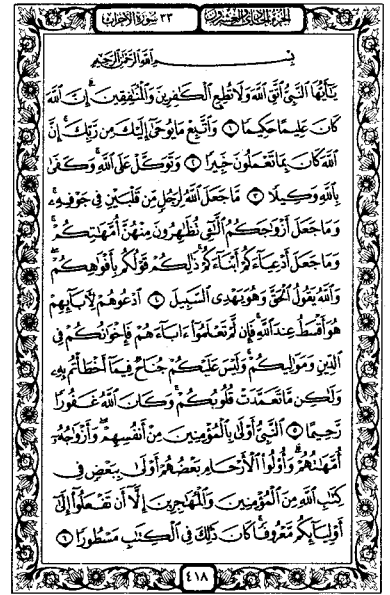 الجزء الحادي والعشرون
٣٣ سورة الأحزاب
بِسْمِ اللَّهِ الرَّحْمَٰنِ الرَّحِيمِ
يَٰٓأَيُّهَا ٱلنَّبِىُّ ٱتَّقِ ٱللَّهَ وَلَا تُطِعِ ٱلْكَٰفِرِينَ وَٱلْمُنَٰفِقِينَ إِنَّ ٱللَّهَ
كَانَ عَلِيمًا حَكِيمًا ١ وَٱتَّبِعْ مَا يُوحَىٰٓ إِلَيْكَ مِن رَّبِّكَ إِنَّ
ٱللَّهَ كَانَ بِمَا تَعْمَلُونَ خَبِيرًا ٢ وَتَوَكَّلْ عَلَى ٱللَّهِ وَكَفَىٰ
بِٱللَّهِ وَكِيلًا ٣ مَّا جَعَلَ ٱللَّهُ لِرَجُلٍ مِّن قَلْبَيْنِ فِى جَوْفِهِۦ
وَمَا جَعَلَ أَزْوَٰجَكُمُ ٱلَّٰٓـِٔى تُظَٰهِرُونَ مِنْهُنَّ أُمَّهَٰتِكُمْ
وَمَا جَعَلَ أَدْعِيَآءَكُمْ أَبْنَآءَكُمْ ذَٰلِكُمْ قَوْلُكُم بِأَفْوَٰهِكُمْ
وَٱللَّهُ يَقُولُ ٱلْحَقَّ وَهُوَ يَهْدِى ٱلسَّبِيلَ ٤ ٱدْعُوهُمْ لِأَبَآئِهِمْ
هُوَ أَقْسَطُ عِندَ ٱللَّهِ فَإِن لَّمْ تَعْلَمُوٓا۟ ءَابَآءَهُمْ فَإِخْوَٰنُكُمْ فِى
ٱلدِّينِ وَمَوَٰلِيكُمْ وَلَيْسَ عَلَيْكُمْ جُنَاحٌ فِيمَآ أَخْطَأْتُم بِهِۦ
وَلَٰكِن مَّا تَعَمَّدَتْ قُلُوبُكُمْ وَكَانَ ٱللَّهُ غَفُورًا
رَّحِيمًا ٥ ٱلنَّبِىُّ أَوْلَىٰ بِٱلْمُؤْمِنِينَ مِنْ أَنفُسِهِمْ وَأَزْوَٰجُهُۥٓ
أُمَّهَٰتُهُمْ وَأُو۟لُوا۟ ٱلْأَرْحَامِ بَعْضُهُمْ أَوْلَىٰ بِبَعْضٍ فِى
كِتَٰبِ ٱللَّهِ مِنَ ٱلْمُؤْمِنِينَ وَٱلْمُهَٰجِرِينَ إِلَّآ أَن تَفْعَلُوٓا۟ إِلَىٰٓ
أَوْلِيَآئِكُم مَّعْرُوفًا كَانَ ذَٰلِكَ فِى ٱلْكِتَٰبِ مَسْطُورًا ٦
٤١٨